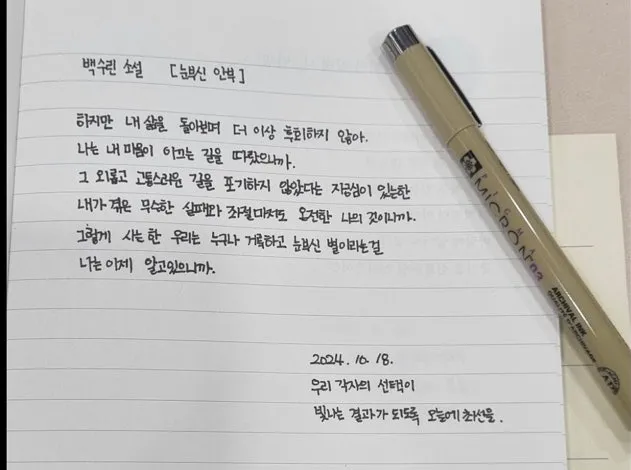 백수린 소설 [눈부신 안부]
하지만 내 삶을 돌아보며 더 이상 후회하지 않아.
나는 내 마음이 이끄는 길을 따랐으니까.
그 외롭고 고통스러운 길을 포기하지 않았다는 자긍심이 있는한
내가 겪은 무수한 실패와 좌절마저도 온전한 나의 것이니까.
그렇게 사는 한 우리는 누구나 거룩하고 눈부신 별이라는걸
나는 이제 알고있으니까.
2024. 10. 18.
우리 각자의 선택이
빛나는 결과가 되도록 오늘에 최선을.
MICRON 03
ARCHIVAL INK